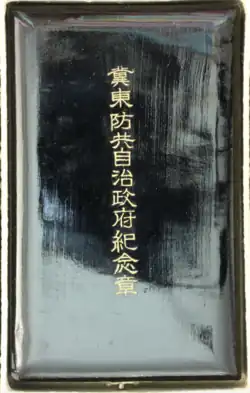 冀東防共自治政府紀念章